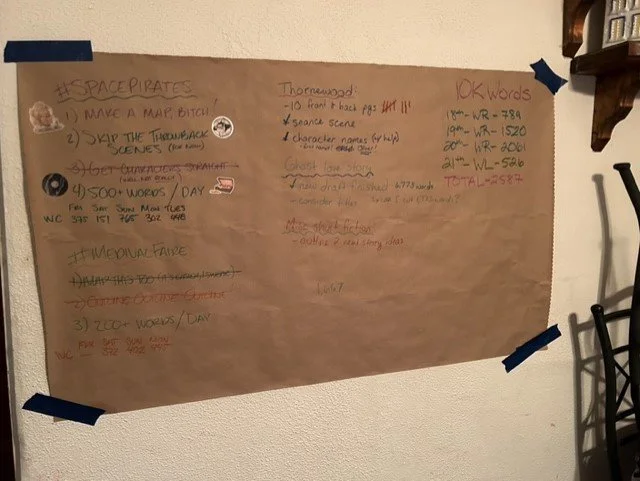 #SPACEPIRATES
1) MAKE A MAP, BITCH!
2) SKIP THE THROWBACK
SCENES (FOR NOW)
3) GET CHARACTERS STRAIGHT
4) 500+ WORDS / DAY
FRI SAT SUN MON TUES
WC 375 151 765 302
#MEDIEVALFAIRE
1) MAP THIS TOO
2) OUTLINE OUTLINE OUTLINE
3) 200+ WORDS / DAY
FRI SAT SUN MON
WC — 372 402
Thornewood:
-10 front & back pgs
seance scene
character names (w/ help)
Ghost love story
new draft finished 6,773 words
- consider
Misc short fiction:
- outline 2 new story ideas
1,667
10K Words
18th - WR - 789
19th - WR - 1520
20th - WR - 2061
21st - WL - 526
TOTAL - 2587